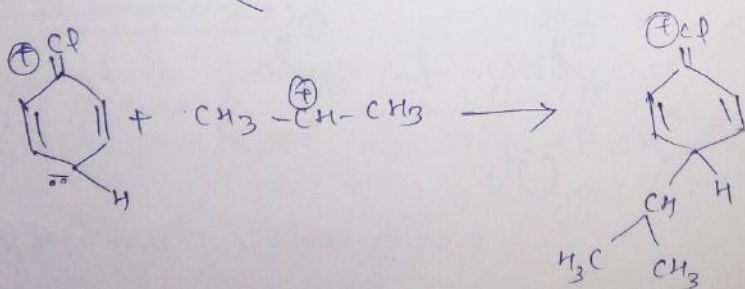 ⊕ Cl ⊕ Cl
+ CH3 - CH - CH3 ⟶
⊕
H
CH H
H3C CH3